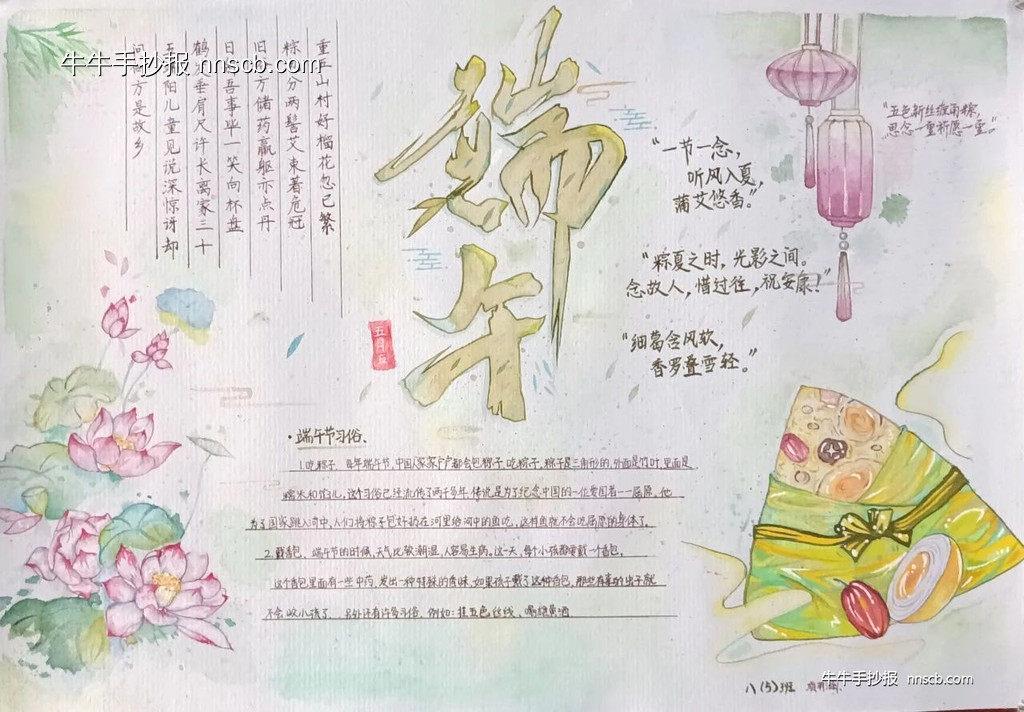 牛牛手抄报 nnscb.com
重五山村好榴花忽已繁
粽包分两髻艾束著危冠
旧俗方储药羸躯亦点丹
日斜吾事毕一笑向杯盘
鹤发垂肩尺许长离家三十
五端阳儿童见说深惊讶却
问何方是故乡
端午
五月五
“五色新丝缠角粽,
思念一重祈愿一重。”
“一节一念,
听风入夏,
蒲艾悠香。”
“粽夏之时,光影之间。
念故人,惜过往,祝安康!”
“细葛含风软,
香罗叠雪轻。”
·端午节习俗、
1.吃粽子、每年端午节,中国人家家户户都会包粽子,吃粽子,粽子是三角形的,外面是竹叶,里面是
糯米和馅儿,这个习俗已经流传了两千多年,传说是为了纪念中国的一位爱国者——屈原。他
为了国家跳入河中,人们将粽子包好扔在河里给河中的鱼吃,这样鱼就不会吃屈原的身体了。
2.戴香包、端午节的时候,天气比较潮湿,人容易生病,这一天,每个小孩都要戴一个香包,
这个香包里面有一些中药,发出一种特殊的香味,如果孩子戴了这种香包,那些有毒的虫子就
不会咬小孩了 另外还有许多习俗、例如:挂五色丝线、喝雄黄酒
八(5)班
牛牛手抄报 nnscb.com